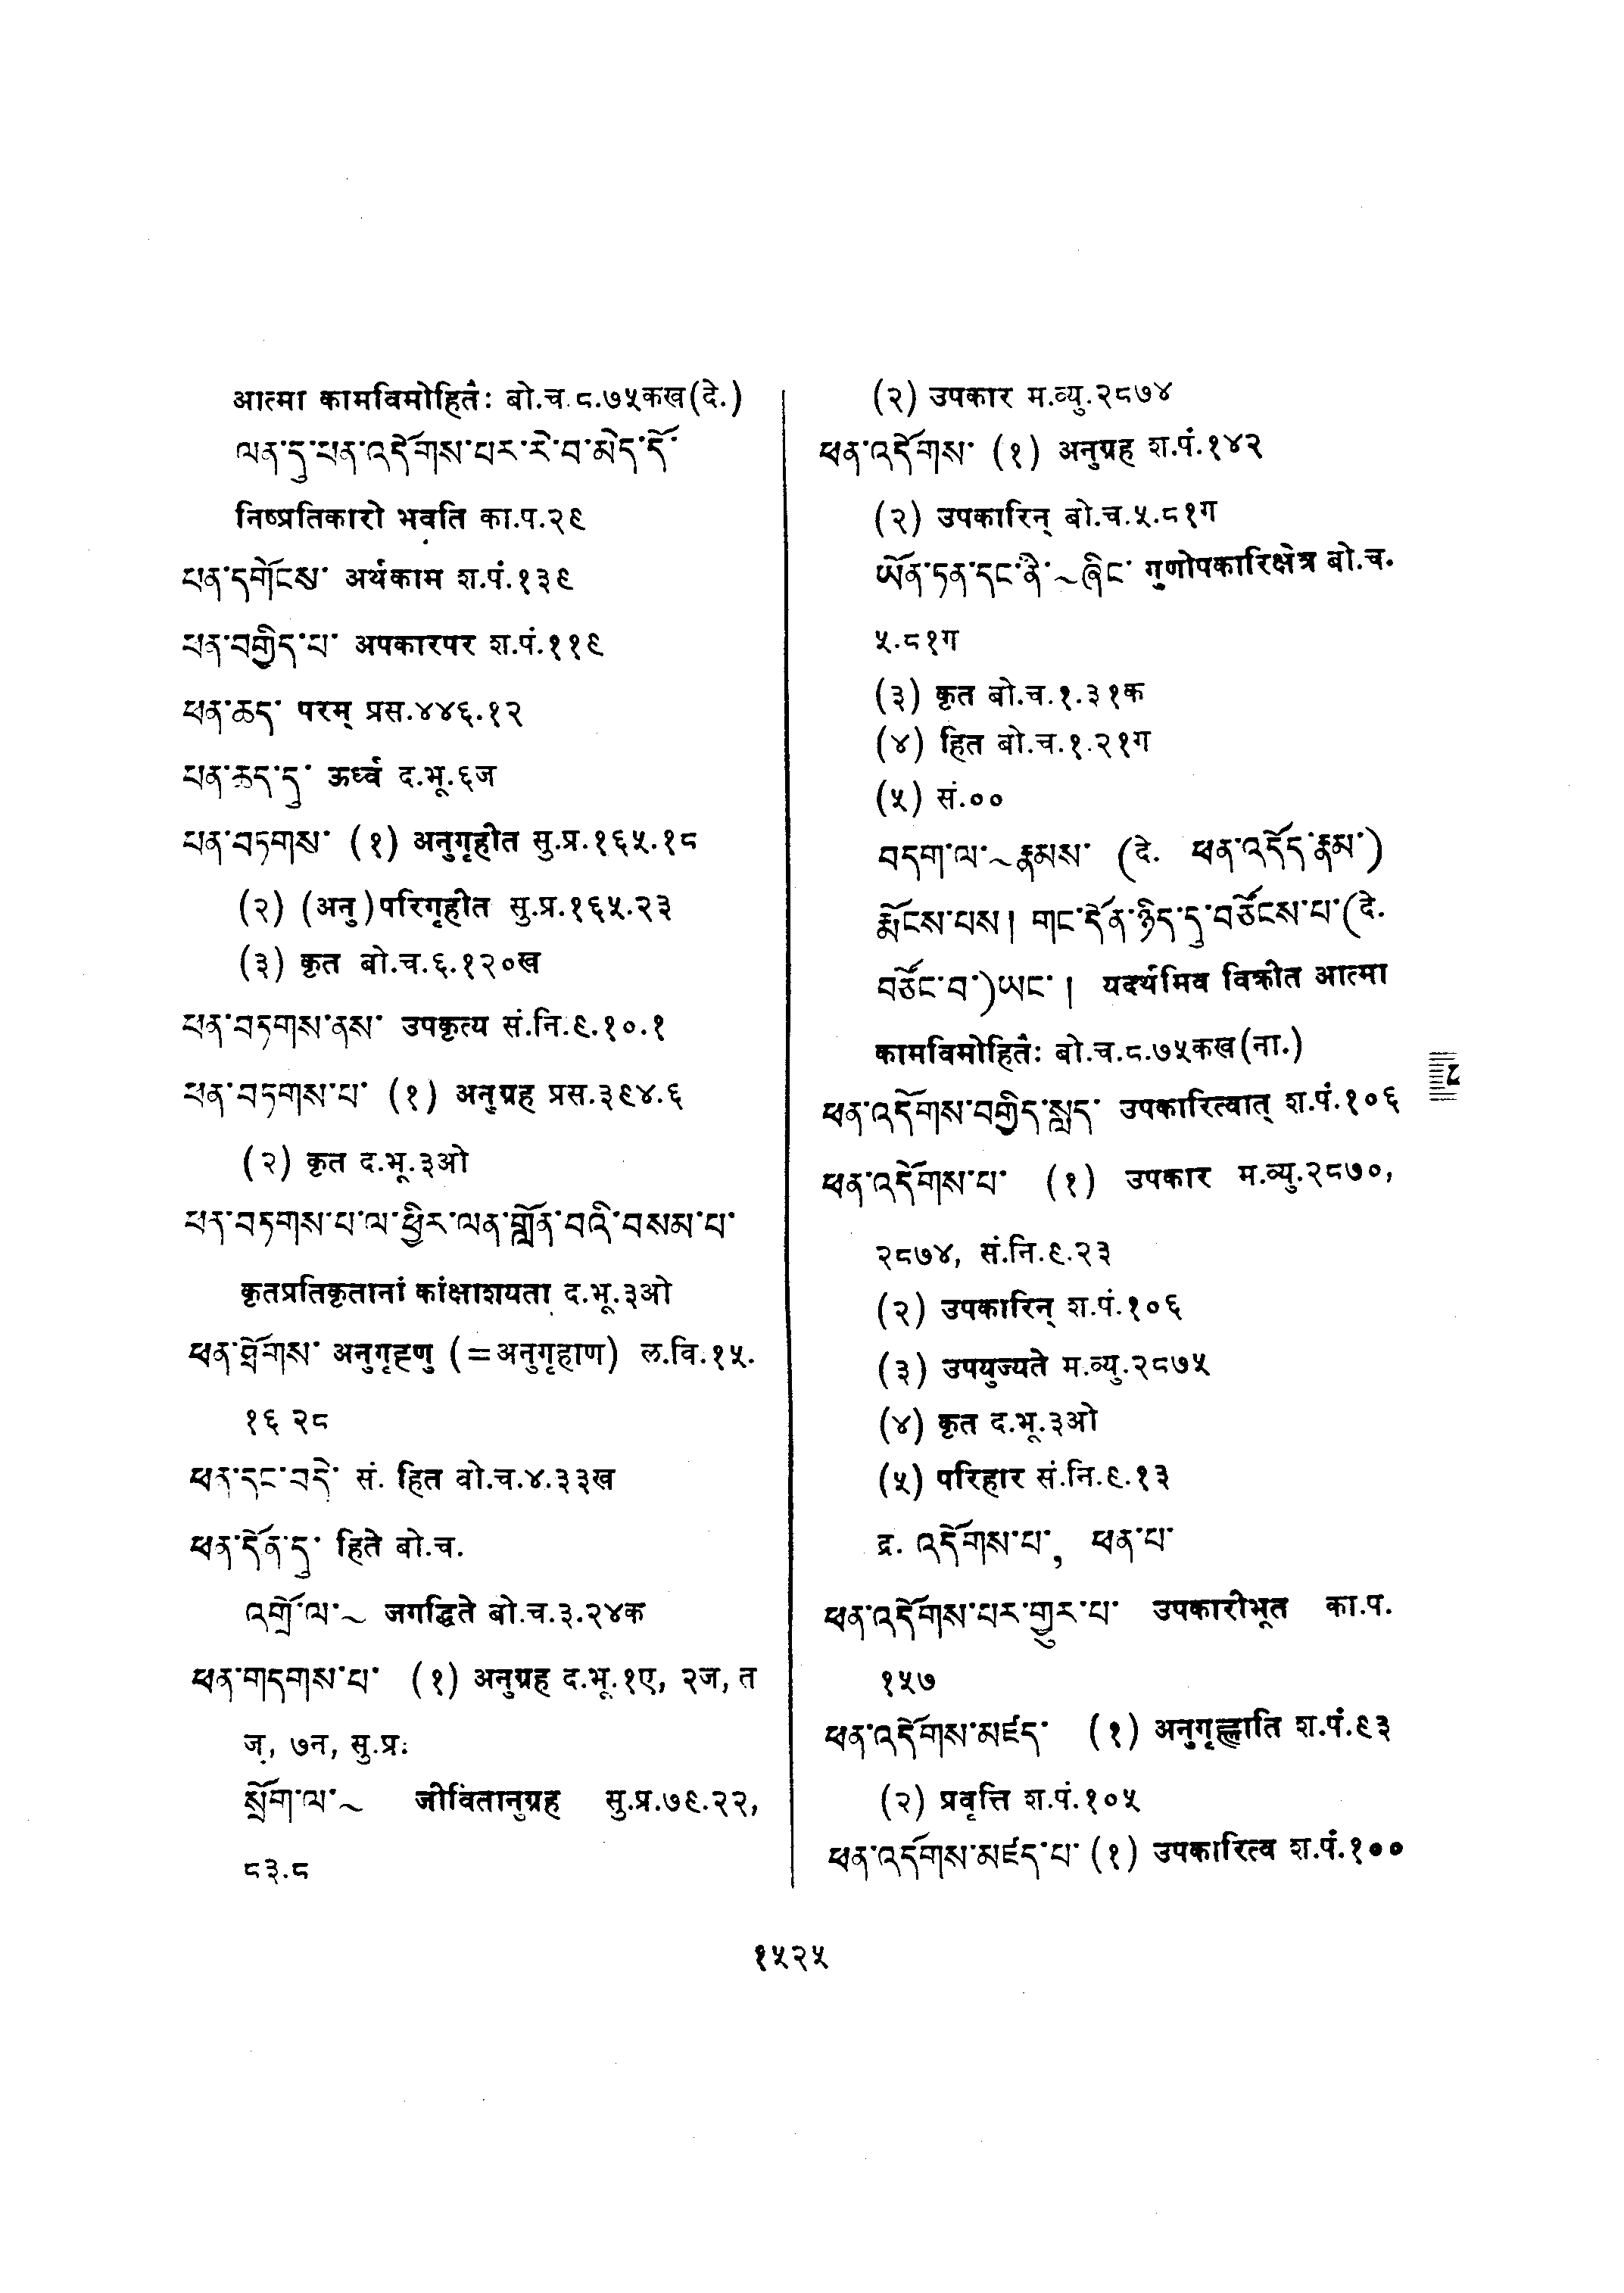 आत्मा कामविमोहितैः बो.च.८.७५कख(दे.)
ལན་དུ་ཕན་འདོགས་པར་རེ་བ་མེད་དོ་
निष्प्रतिकारो भवति का.प.२९
ཕན་དགོངས་ अर्थकाम श.पं.१३९
ཕན་བགྱིད་པ་ अपकारपर श.पं.११९
ཕན་ཆད་ परम् प्रस.४४६.१२
ཕན་ཆད་དུ་ ऊर्ध्वं द.भू.६ज
ཕན་བཏགས་ (१) अनुगृहीत सु.प्र.१६५.१८
(२) (अनु)परिगृहीत सु.प्र.१६५.२३
(३) कृत बो.च.६.१२०ख
ཕན་བཏགས་ནས་ उपकृत्य सं.नि.९.१०.१
ཕན་བཏགས་པ་ (१) अनुग्रह प्रस.३९४.६
(२) कृत द.भू.३ओ
ཕན་བཏགས་པ་ལ་ཕྱིར་ལན་གློན་བའི་བསམ་པ་
कृतप्रतिकृतानां कांक्षाशयता द.भू.३ओ
ཕན་ཐོགས་ अनुगृह्णु (=अनुगृहाण) ल.वि.१५.
१६२८
ཕན་དང་བདེ་ सं. हित बो.च.४.३३ख
ཕན་དོན་དུ་ हिते बो.च.
འགྲོ་ལ་~ जगद्धिते बो.च.३.२४क
ཕན་གདགས་པ་ (१) अनुग्रह द.भू.१ए, २ज, त
ज, ७न, सु.प्र.:
སྲོག་ལ་~ जीवितानुग्रह सु.प्र.७९.२२,
८३.८
(२) उपकार म.व्यु.२८७४
ཕན་འདོགས་ (१) अनुग्रह श.पं.१४२
(२) उपकारिन् बो.च.५.८१ग
ཡོན་ཏན་དང་ནི་~ཞིང་ गुणोपकारिक्षेत्र बो.च.
५.८१ग
(३) कृत बो.च.१.३१क
(४) हित बो.च.१.२१ग
(५) सं.००
བདག་ལ་~རྣམས་ (दे. ཕན་འདོད་རྣམ་)
རྨོངས་པས། གང་དོན་ཉིད་དུ་བཙོངས་པ་(दे.
བཙོང་བ་)ཡང་། यदर्थमिव विक्रीत आत्मा
कामविमोहितैः बो.च.८.७५कख(ना.)
ཕན་འདོགས་བགྱིད་སླད་ उपकारित्वात् श.पं.१०६
ཕན་འདོགས་པ་ (१) उपकार म.व्यु.२८७०,
२८७४, सं.नि.९.२३
(२) उपकारिन् श.पं.१०६
(३) उपयुज्यते म.व्यु.२८७५
(४) कृत द.भू.३ओ
(५) परिहार सं.नि.९.१३
द्र. འདོགས་པ་, ཕན་པ་
ཕན་འདོགས་པར་གྱུར་པ་ उपकारीभूत का.प.
१५७
ཕན་འདོགས་མཛད་ (१) अनुगृह्णाति श.पं.९३
(२) प्रवृत्ति श.पं.१०५
ཕན་འདོགས་མཛད་པ་ (१) उपकारित्व श.पं.१००
१५२५